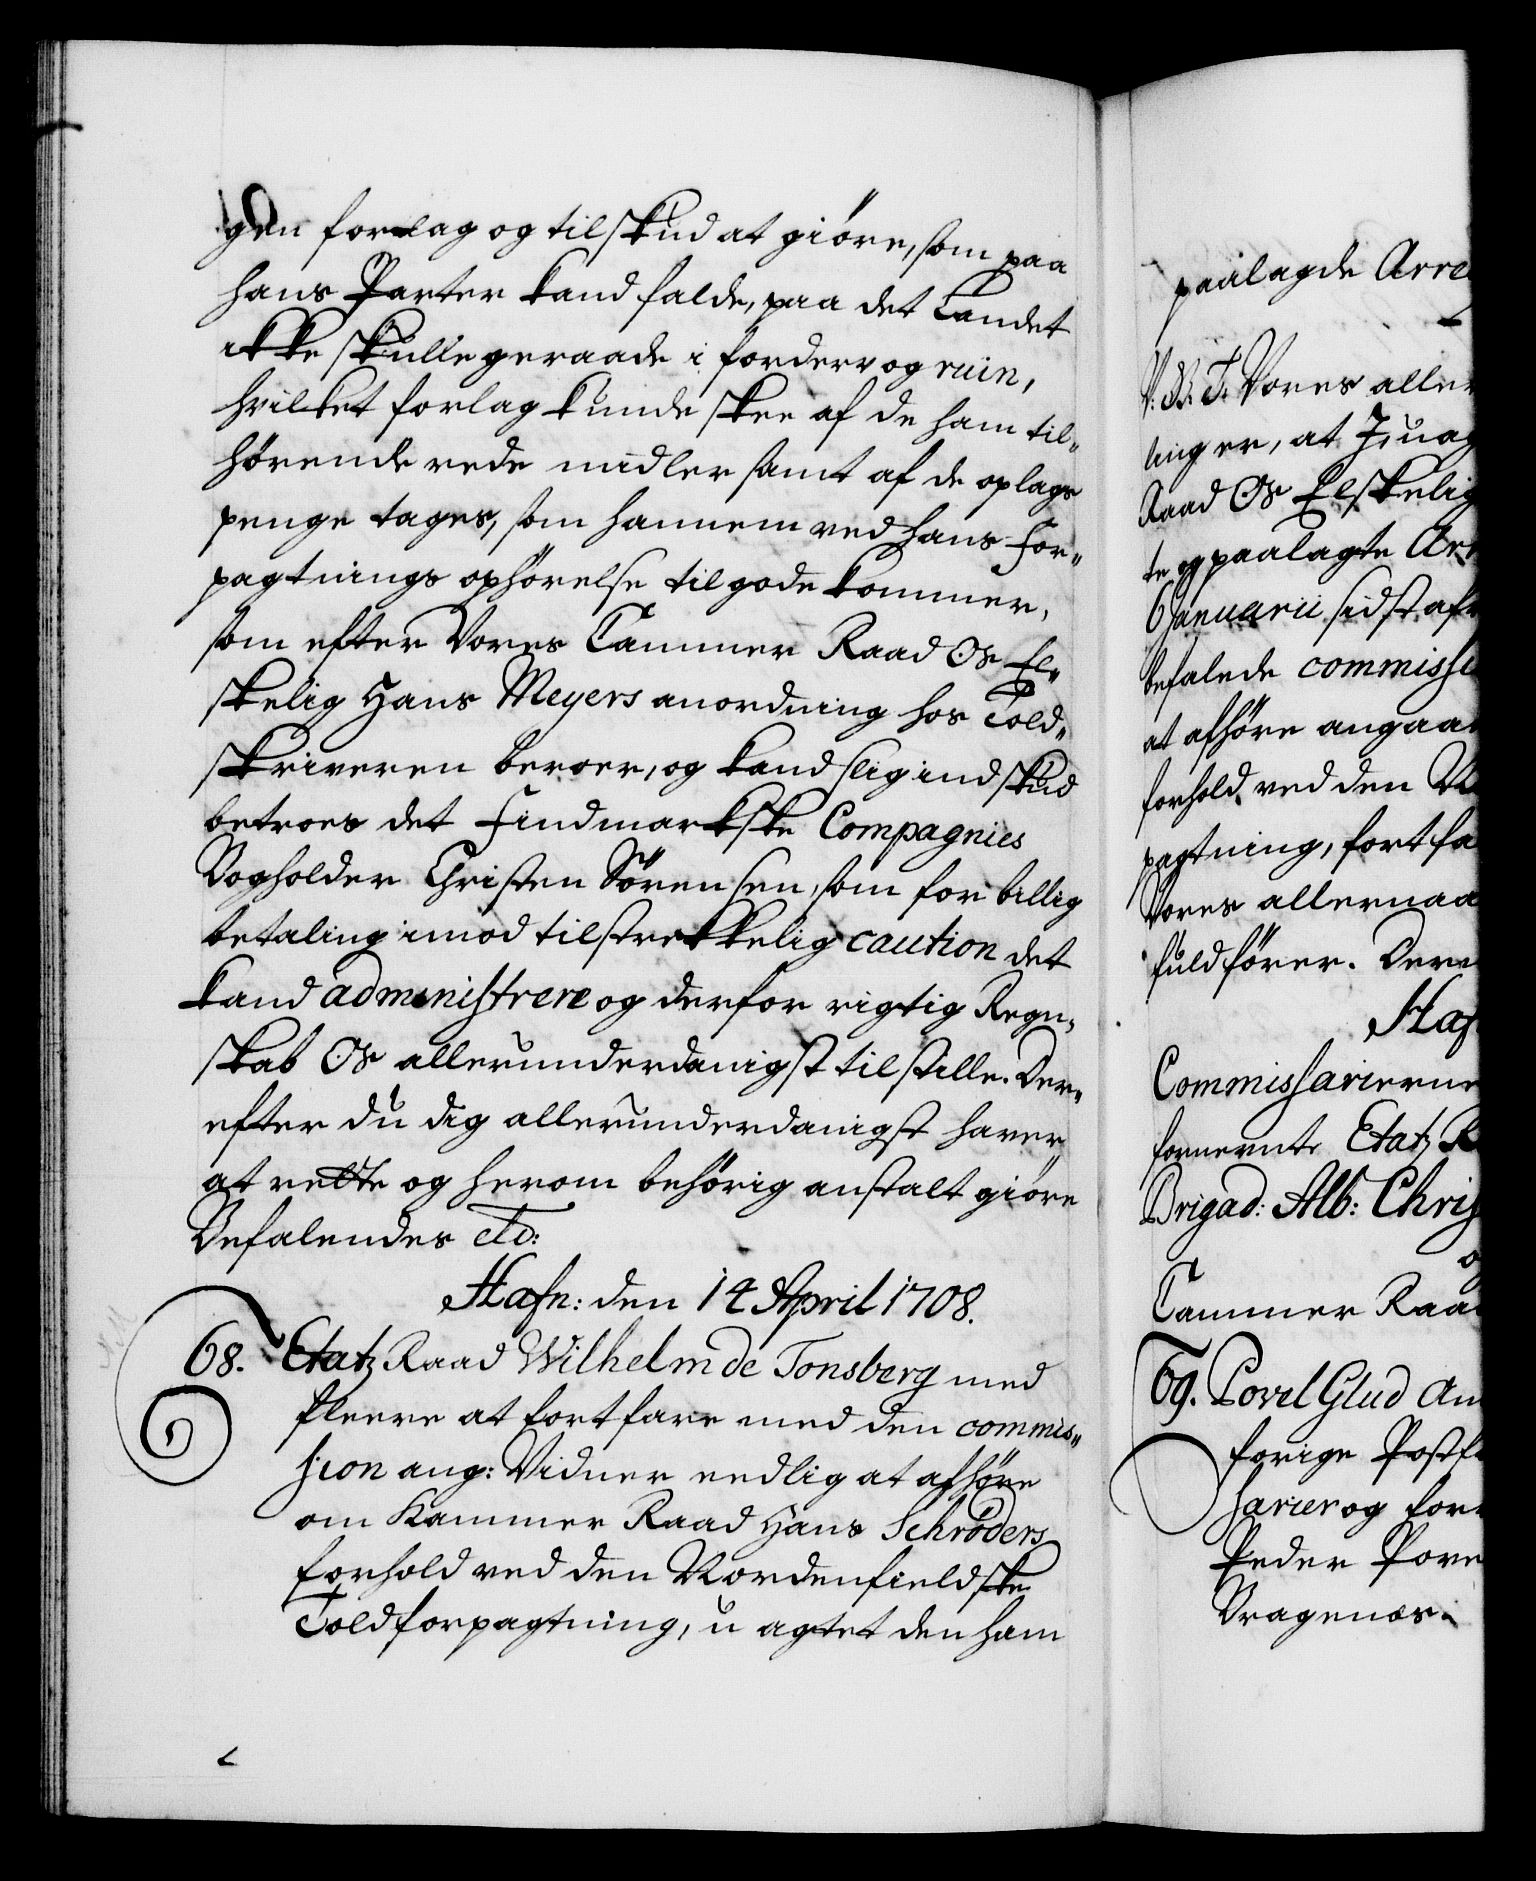 gen forlag og tilskud at giöre, som paa
hans Parter kand falde, paa det Landet
ikke skulle geraade i forderv og ruin,
hvilket forlag kunde skee af de ham til„
hörende rede midler samt af de oplags
penge tages, som hannem ved hans For„
pagtnings ophörelse tilgode kommer,
som efter Vores Cammer Raad Os El„
skelig Hans Meyers anordning hos Told„
skriveren beroer, og kand slig indskud
betroes det Findmarkske Compagnies
Bogholder Christen Sörensen, som for billig
betaling imod tilstrekkelig caution det
kand administrere og derfor rigtig Regn„
skab Os allerunderdanigst tilstille. Der„
efter du dig allerunderdanigst haver
at rette og herom behörig anstalt giöre
Befalendes etc:
Hafn: den 14 April 1708.
68. Etatz Raad Wilhelm de Tonsberg med
fleere at fortfare med den commis„
sion ang: Vidner eedlig at afhöre
om Kammer Raad Hans Schröders
forhold ved den Nordenfieldske
Toldforpagtning, u agtet den ham
paalagde Arre
V. G. T. Vores aller
ling er, at I, uag
Raad Os Elskelig
te og paalagte Arr
6 Januarii sidst af
befalede commissi
at afhöre angaa
forhold ved den N
pagtning, fortfa
Vores allernaa
fuldförer. Der
Haf
Commissarierne
fornevnte Etatz R
Brigad: Alb: Chris
og
Cammer Raa
69. Povel Glud An
forige Postf
sarier og for
Peder Pove
Bragenæs.